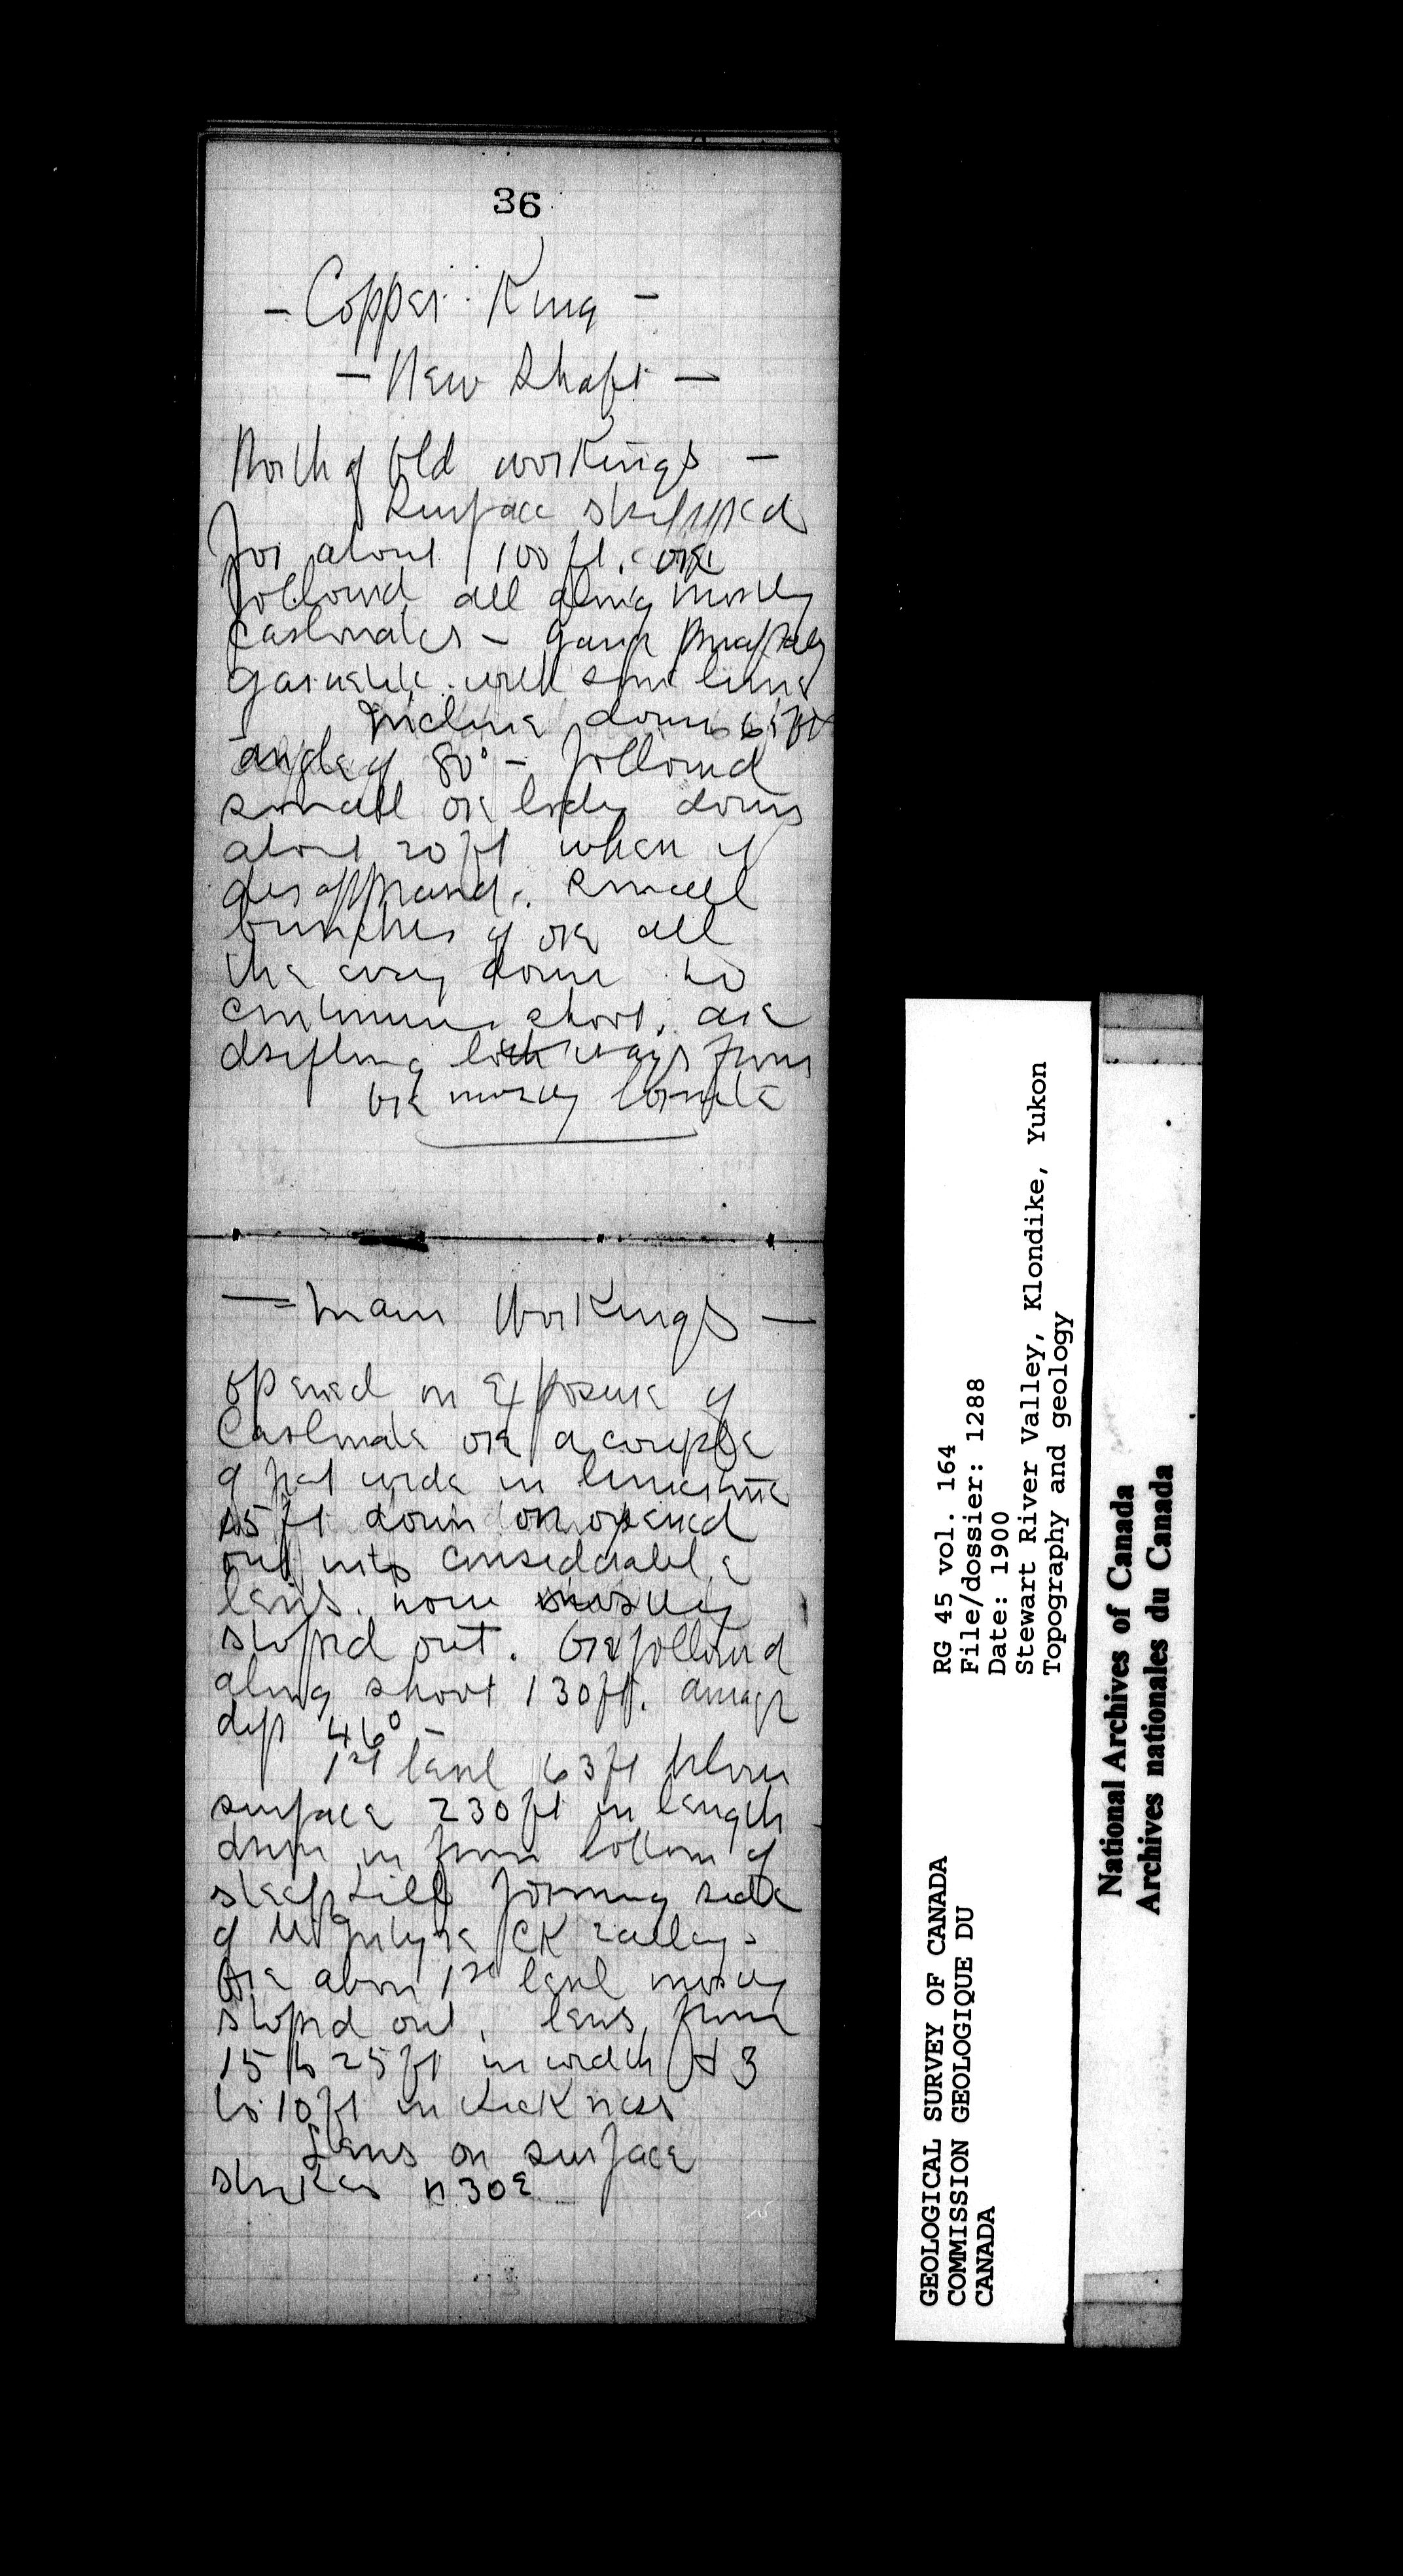 36
- Copper King -
- New Shaft -
North of Old workings -
Surface stripped
for about 100 ft. ore
followed all along mostly
carbonates -
garnetite with some lime
Incline down 65 ft
angle of 80° - followed
small ore body down
about 20 ft when it
disappeared. small
bunches of ore all
the way down no
continuous shoot. are
drifting both ways from
ore mostly bornite
- Main Workings -
opened on exposure of
Carbonate ore a couple
of feet wide in limestone
ft down ore opened
out into considerable
lens. now mostly
stoped out. Ore followed
along shoot 130 ft. average
dip 46° -
1st level 63 ft below
surface 230 ft in length
driven in from bottom of
steep hill forming side
of McIntyre CK valley -
Ore above 1st level mostly
stoped out. lens from
15 to 25 ft in width & 3
to 10 ft in thickness
Lens on surface
strikes N 30 E
GEOLOGICAL SURVEY OF CANADA
COMMISSION GEOLOGIQUE DU
CANADA
RG 45 vol. 164
File/dossier: 1288
Date: 1900
Stewart River Valley, Klondike, Yukon
Topography and geology
National Archives of Canada
Archives nationales du Canada